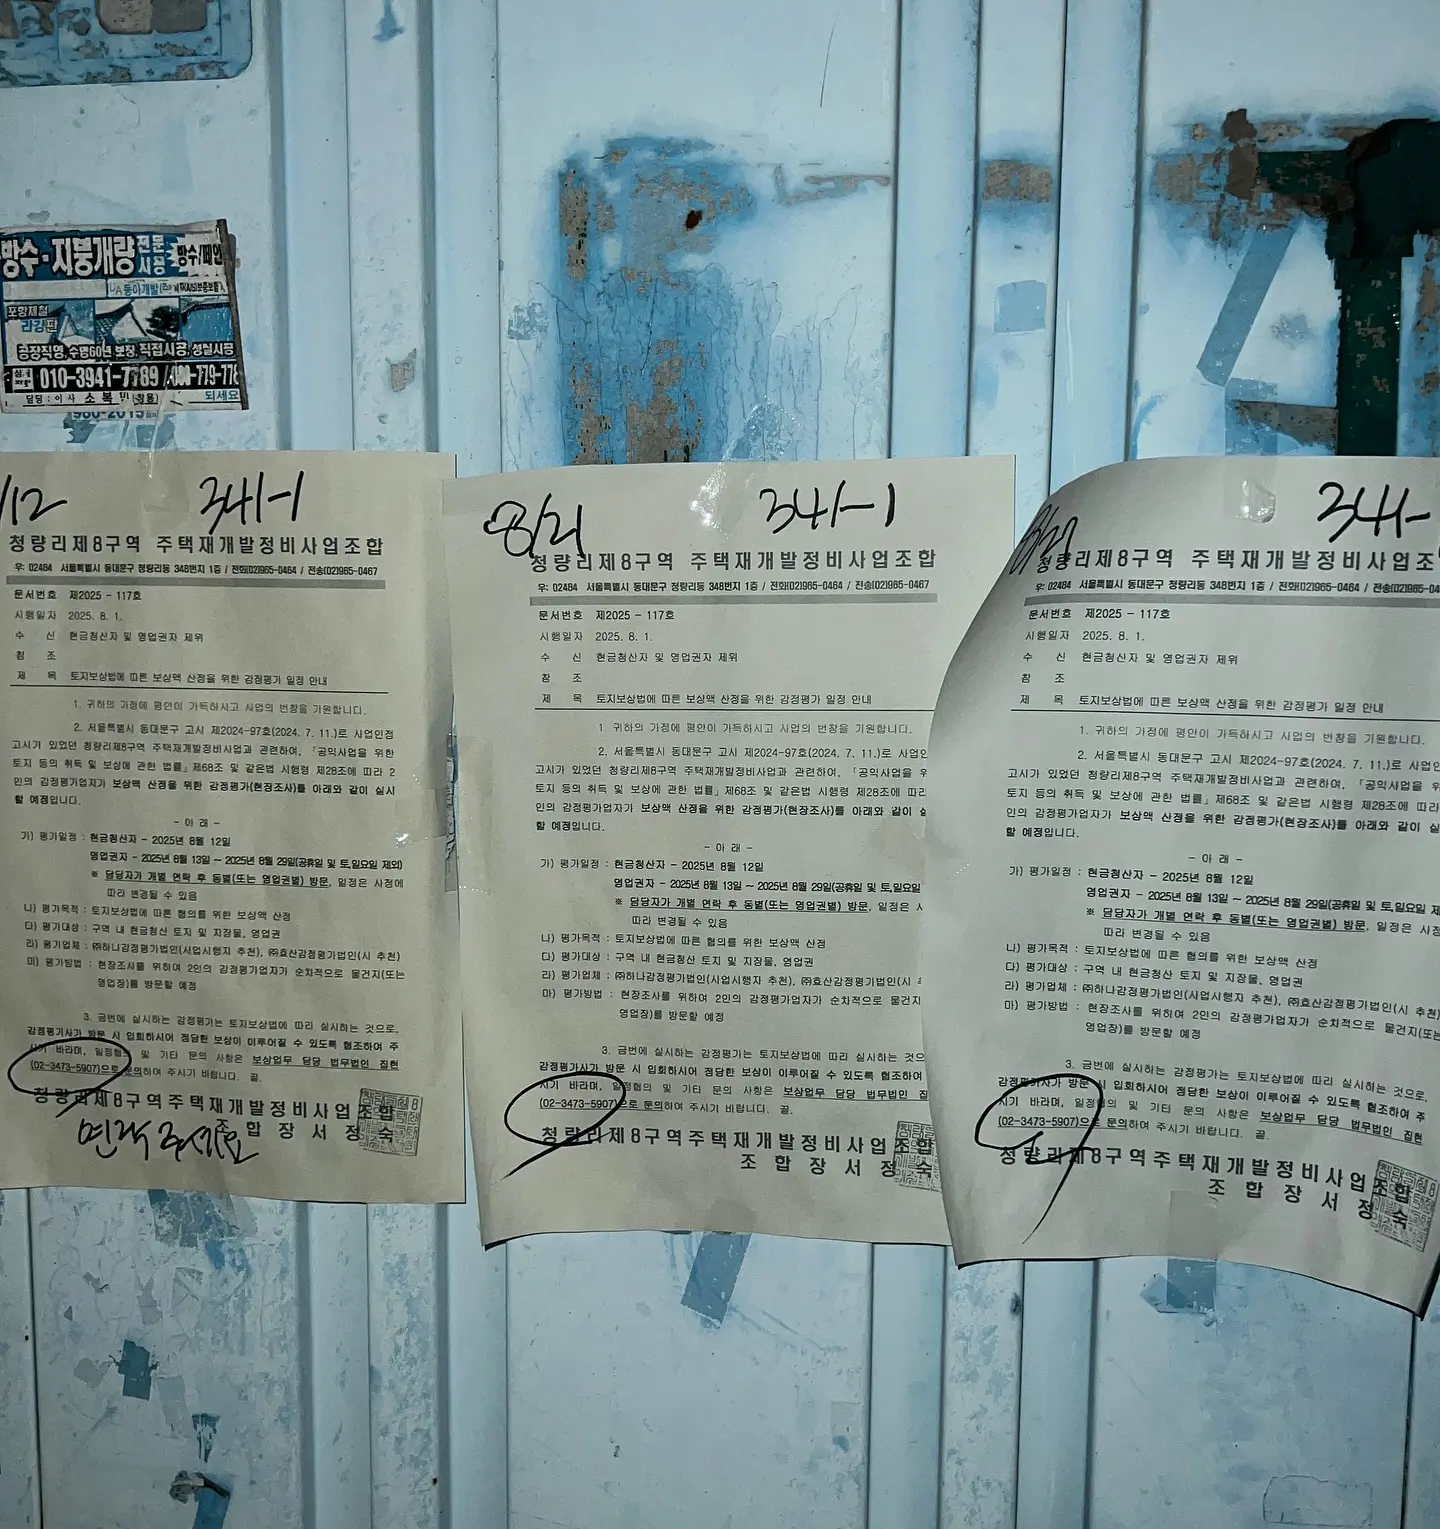 방수·지붕개량 전문시공 방수/페인
동아개발(주)
포항제철
라강판
공장직영, 수명60년 보장, 직접시공, 성실시공
010-3941-7789 /
담당 : 이사 소복
되세요
/12 341-1
청량리제8구역 주택재개발정비사업조합
우: 02484 서울특별시 동대문구 청량리동 348번지 1층 / 전화(02)965-0464 / 전송(02)965-0467
문서번호 제2025 - 117호
시행일자 2025. 8. 1.
수 신 현금청산자 및 영업권자 제위
참 조
제 목 토지보상법에 따른 보상액 산정을 위한 감정평가 일정 안내
1. 귀하의 가정에 평안이 가득하시고 사업의 번창을 기원합니다.
2. 서울특별시 동대문구 고시 제2024-97호(2024. 7. 11.)로 사업인정
고시가 있었던 청량리제8구역 주택재개발정비사업과 관련하여, 「공익사업을 위한
토지 등의 취득 및 보상에 관한 법률」제68조 및 같은법 시행령 제28조에 따라 2
인의 감정평가업자가 보상액 산정을 위한 감정평가(현장조사)를 아래와 같이 실시
할 예정입니다.
- 아 래 -
가) 평가일정 : 현금청산자 - 2025년 8월 12일
영업권자 - 2025년 8월 13일 ~ 2025년 8월 29일(공휴일 및 토,일요일 제외)
※ 담당자가 개별 연락 후 동별(또는 영업권별) 방문, 일정은 사정에
따라 변경될 수 있음
나) 평가목적 : 토지보상법에 따른 협의를 위한 보상액 산정
다) 평가대상 : 구역 내 현금청산 토지 및 지장물, 영업권
라) 평가업체 : ㈜하나감정평가법인(사업시행자 추천), ㈜효산감정평가법인(시 추천)
마) 평가방법 : 현장조사를 위하여 2인의 감정평가업자가 순차적으로 물건지(또는
영업장)를 방문할 예정
3. 금번에 실시하는 감정평가는 토지보상법에 따라 실시하는 것으로,
감정평가사가 방문 시 입회하시어 정당한 보상이 이루어질 수 있도록 협조하여 주
시기 바라며, 일정협의 및 기타 문의 사항은 보상업무 담당 법무법인 집현
(02-3473-5907)으로 문의하여 주시기 바랍니다. 끝.
청량리제8구역주택재개발정비사업조합
조 합 장 서 정 숙
연락주세요
8/21 341-1
청량리제8구역 주택재개발정비사업조합
우: 02484 서울특별시 동대문구 청량리동 348번지 1층 / 전화(02)965-0464 / 전송(02)965-0467
문서번호 제2025 - 117호
시행일자 2025. 8. 1.
수 신 현금청산자 및 영업권자 제위
참 조
제 목 토지보상법에 따른 보상액 산정을 위한 감정평가 일정 안내
1. 귀하의 가정에 평안이 가득하시고 사업의 번창을 기원합니다.
2. 서울특별시 동대문구 고시 제2024-97호(2024. 7. 11.)로 사업인
고시가 있었던 청량리제8구역 주택재개발정비사업과 관련하여, 「공익사업을 위
토지 등의 취득 및 보상에 관한 법률」제68조 및 같은법 시행령 제28조에 따라
인의 감정평가업자가 보상액 산정을 위한 감정평가(현장조사)를 아래와 같이 실
할 예정입니다.
- 아 래 -
가) 평가일정 : 현금청산자 - 2025년 8월 12일
영업권자 - 2025년 8월 13일 ~ 2025년 8월 29일(공휴일 및 토,일요일
※ 담당자가 개별 연락 후 동별(또는 영업권별) 방문, 일정은 사
따라 변경될 수 있음
나) 평가목적 : 토지보상법에 따른 협의를 위한 보상액 산정
다) 평가대상 : 구역 내 현금청산 토지 및 지장물, 영업권
라) 평가업체 : ㈜하나감정평가법인(사업시행자 추천), ㈜효산감정평가법인(시
마) 평가방법 : 현장조사를 위하여 2인의 감정평가업자가 순차적으로 물건지
영업장)를 방문할 예정
3. 금번에 실시하는 감정평가는 토지보상법에 따라 실시하는 것으
감정평가사가 방문 시 입회하시어 정당한 보상이 이루어질 수 있도록 협조하여
시기 바라며, 일정협의 및 기타 문의 사항은 보상업무 담당 법무법인 집
(02-3473-5907)으로 문의하여 주시기 바랍니다. 끝.
청량리제8구역주택재개발정비사업조합
조 합 장 서 정 숙
8/27 341-
청량리제8구역 주택재개발정비사업조
우: 02484 서울특별시 동대문구 청량리동 348번지 1층 / 전화(02)965-0464 / 전송(02)965-04
문서번호 제2025 - 117호
시행일자 2025. 8. 1.
수 신 현금청산자 및 영업권자 제위
참 조
제 목 토지보상법에 따른 보상액 산정을 위한 감정평가 일정 안내
1. 귀하의 가정에 평안이 가득하시고 사업의 번창을 기원합니다.
2. 서울특별시 동대문구 고시 제2024-97호(2024. 7. 11.)로 사업인
고시가 있었던 청량리제8구역 주택재개발정비사업과 관련하여, 「공익사업을 위
토지 등의 취득 및 보상에 관한 법률」제68조 및 같은법 시행령 제28조에 따라
인의 감정평가업자가 보상액 산정을 위한 감정평가(현장조사)를 아래와 같이 실
할 예정입니다.
- 아 래 -
가) 평가일정 : 현금청산자 - 2025년 8월 12일
영업권자 - 2025년 8월 13일 ~ 2025년 8월 29일(공휴일 및 토,일요일 제
※ 담당자가 개별 연락 후 동별(또는 영업권별) 방문, 일정은 사정
따라 변경될 수 있음
나) 평가목적 : 토지보상법에 따른 협의를 위한 보상액 산정
다) 평가대상 : 구역 내 현금청산 토지 및 지장물, 영업권
라) 평가업체 : ㈜하나감정평가법인(사업시행자 추천), ㈜효산감정평가법인(시 추천)
마) 평가방법 : 현장조사를 위하여 2인의 감정평가업자가 순차적으로 물건지(또는
영업장)를 방문할 예정
3. 금번에 실시하는 감정평가는 토지보상법에 따라 실시하는 것으로,
감정평가사가 방문 시 입회하시어 정당한 보상이 이루어질 수 있도록 협조하여 주
시기 바라며, 일정협의 및 기타 문의 사항은 보상업무 담당 법무법인 집현
(02-3473-5907)으로 문의하여 주시기 바랍니다. 끝.
청량리제8구역주택재개발정비사업조합
조 합 장 서 정 숙